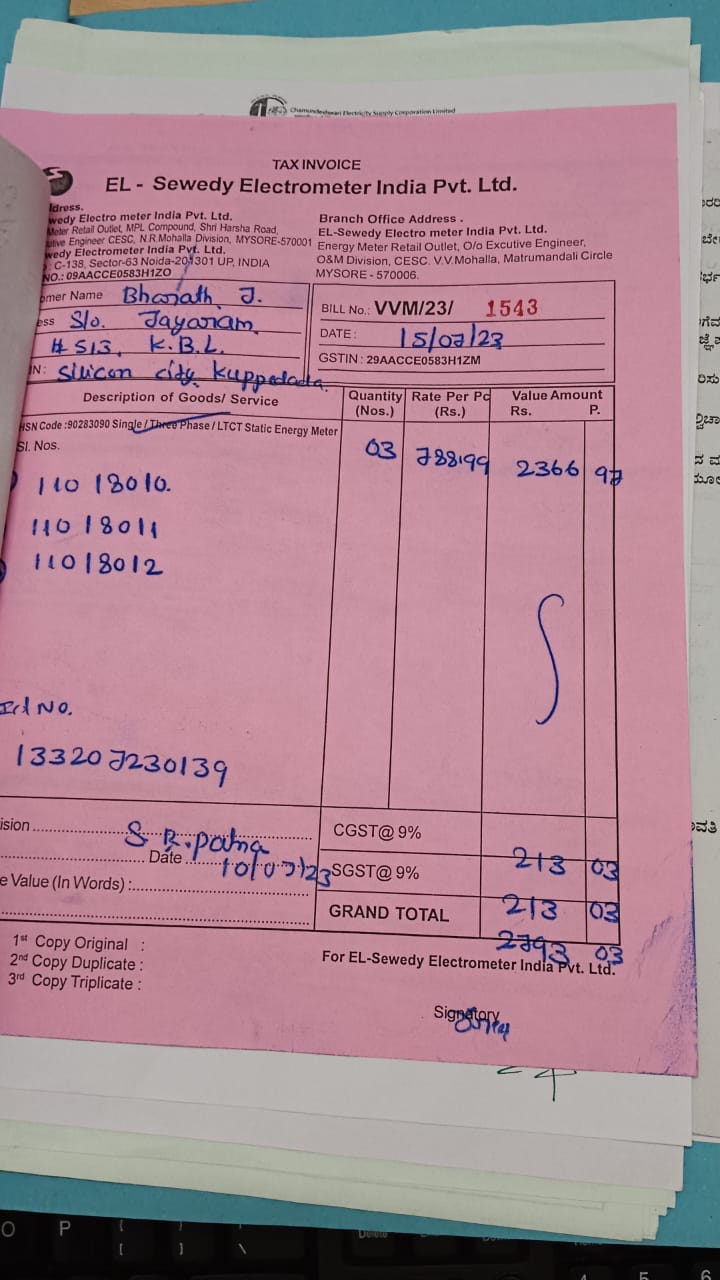 Chamundeshwari Electricity Supply Corporation Limited
TAX INVOICE
EL - Sewedy Electrometer India Pvt. Ltd.
dress.
wedy Electro meter India Pvt. Ltd.
Meter Retail Outlet, MPL Compound, Shri Harsha Road,
utive Engineer CESC, N.R.Mohalla Division, MYSORE-570001
wedy Electrometer India Pvt. Ltd.
C-138, Sector-63 Noida-201301 UP, INDIA
NO.: 09AACCE0583H1ZO
Branch Office Address .
EL-Sewedy Electro meter India Pvt. Ltd.
Energy Meter Retail Outlet, O/o Excutive Engineer,
O&M Division, CESC. V.V.Mohalla, Matrumandali Circle
MYSORE - 570006.
omer Name Bharath. J.
ess S/o. Jayaram.
# 513, K.B.L.
IN: Silicon city,
BILL No.: VVM/23/ 1543
DATE : 15/07/23
GSTIN : 29AACCE0583H1ZM
Description of Goods/ Service Quantity (Nos.) Rate Per Pc (Rs.) Value Amount Rs. P.
HSN Code :90283090 Single / Three Phase / LTCT Static Energy Meter
Sl. Nos. 03 788.99 2366 97
11018010.
11018011
11018012
Id No.
133207230139
ision
CGST@ 9% 213 03
Date 10/07/23 SGST@ 9% 213 03
e Value (In Words) :
GRAND TOTAL 2793 03
1st Copy Original :
2nd Copy Duplicate :
3rd Copy Triplicate :
For EL-Sewedy Electrometer India Pvt. Ltd.
Signatory
O P { [ } ] \